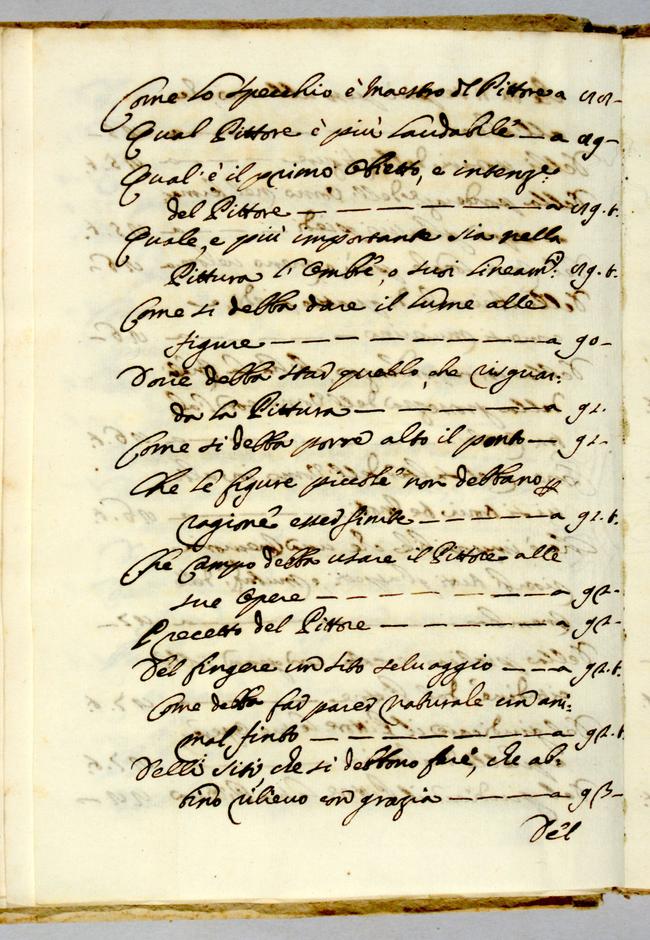 Come lo specchio è Maestro del Pittore a 88-
Qual Pittore è più laudabile — a 89-
Qual'è il primo obietto, e intenze:
del Pittore — — — — — — — a 89. t.
Quale, e più importante sia nella
Pittura l'ombre, o suoi lineam.ti 89. t.
Come si debba dare il lume alle
figure — — — — — — — — a 90-
Dove debba star quello, che risguar:
da la Pittura — — — — — — a 91.
Come si debba porre alto il ponto — 91-
Che le figure piccole non debbano p
ragione esser finite — — — — — a 91. t.
Che Campo debba usare il Pittore alle
sue opere — — — — — — — a 92-
Precetto del Pittore — — — — — a 92-
Del fingere un sito seluaggio — — a 92. t.
Come debba far parer naturale un ani:
mal finto — — — — — — — a 92. t.
Delli siti, che si debbono fare, che ab:
bino rilievo con grazia — — — — a 93-
Del